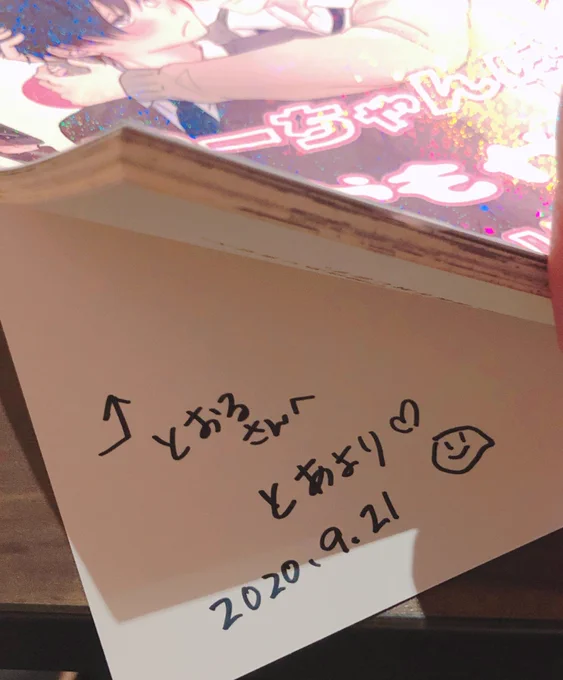 ーちゃん
とおる
さんへ
とあより♡
2020.9.21